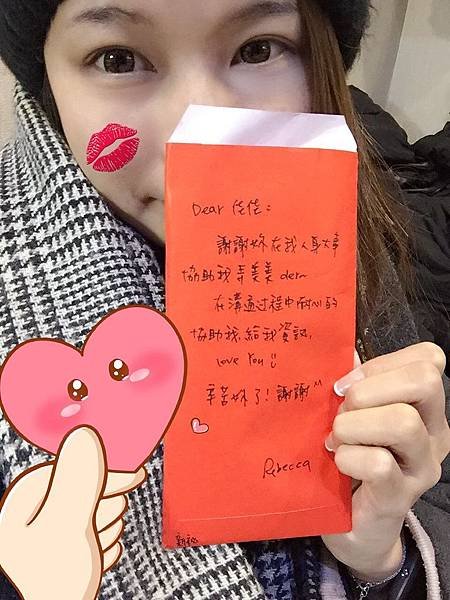 Dear 佳佳：
謝謝妳在我人身大事
協助我弄美美 der~
在溝通過程中耐心的
協助我,給我資訊,
love You
辛苦妳了！謝謝^^
Rebecca